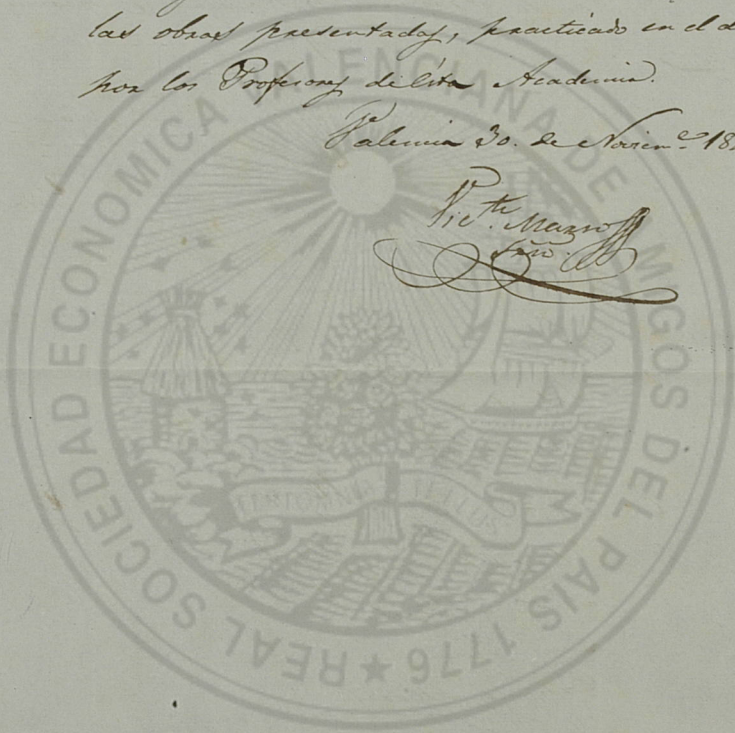 las obras presentadas, practicado en el
por los Profesores de esta Academia.
Valencia 30. de Noviem.e 18
Vic.te Marzo
Srio.
REAL SOCIEDAD ECONOMICA VALENCIANA DE AMIGOS DEL PAIS 1776 ★
FERT OMNIA TELLUS